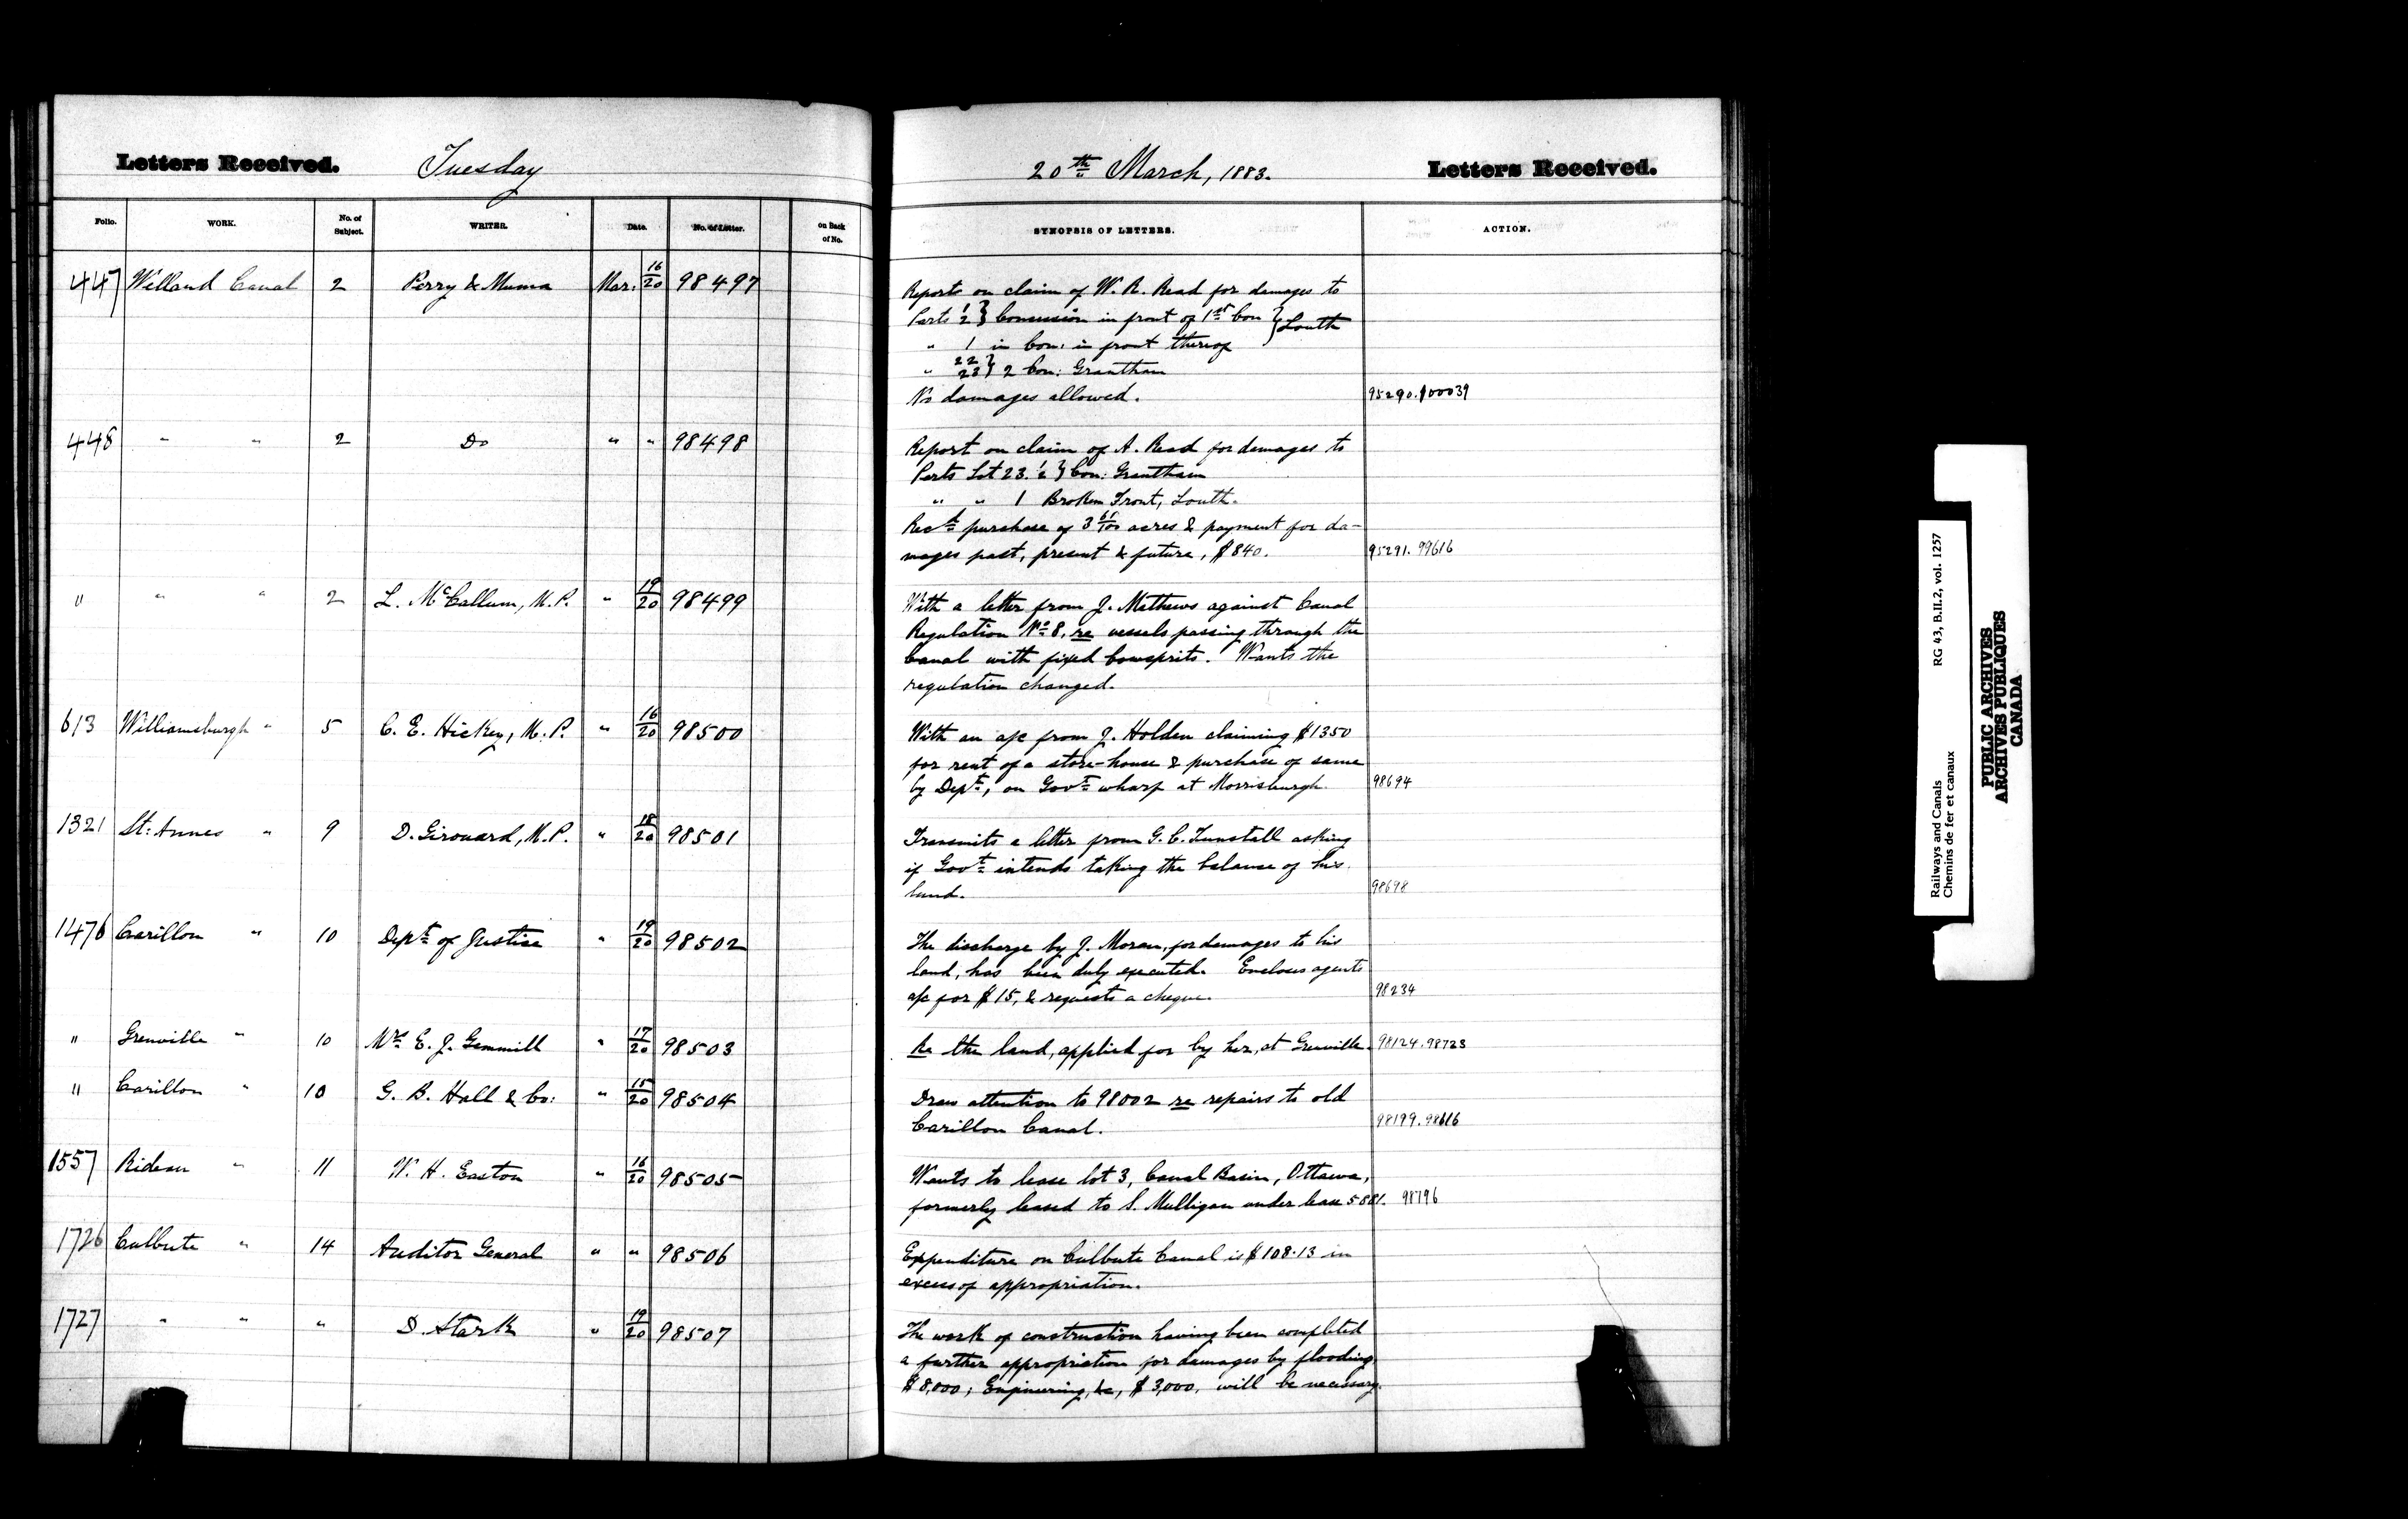 Letters Received. Tuesday 20th March, 1883. Letters Received.
Folio. WORK. No. of Subject. WRITER. Date. No. of Letter. on Back of No. SYNOPSIS OF LETTERS. ACTION.
447 Welland Canal 2 Perry & Muma Mar: 16/20 98497 Reports on claim of W. R. Read for damages to
Parts 1 2 } Concession in front of 1st Con } Louth
" 1 in Con: in front thereof
" 22 23 } 2 Con: Grantham
No damages allowed. 95290. 100039
448 " " 2 Do " " 98498 Report on claim of A. Read for damages to
Parts Lot 23. 1 2 } Con: Grantham
" " 1 Broken Front, Louth.
Recds purchase of 3 61/100 acres & payment for da-
mages past, present & future, $840. 95291. 99616
" " " 2 L. McCallum, M.P. " 19/20 98499 With a letter from J. Mathews against Canal
Regulation No 8, re vessels passing through the
Canal with fixed bowsprits. Wants the
regulation changed.
613 Williamsburgh " 5 C. E. Hickey, M.P. " 16/20 98500 With an a/c from J. Holden claiming $1350
for rent of a store-house & purchase of same
by Dept, on Govt wharf at Morrisburgh. 98694
1321 St: Annes " 9 D. Girouard, M.P. " 18/20 98501 Transmits a letter from G. C. Tunstall asking
if Govt intends taking the balance of his
land. 98698
1476 Carillon " 10 Dept of Justice " 19/20 98502 The discharge by J. Moran, for damages to his
land, has been duly executed. Encloses agents
a/c for $15, & requests a cheque. 98234
" Grenville " 10 Mrs E. J. Gemmill " 17/20 98503 Re the land, applied for by her, at Grenville. 98124. 98723
" Carillon " 10 G. B. Hall & Co: " 15/20 98504 Draws attention to 98002 re repairs to old
Carillon Canal. 98199. 98616
1557 Rideau " 11 W. H. Easton " 16/20 98505 Wants to lease lot 3, Canal Basin, Ottawa,
formerly leased to S. Mulligan under lease 5881. 98796
1726 Culbute " 14 Auditor General " " 98506 Expenditure on Culbute Canal is $108.13 in
excess of appropriation.
1727 " " " D. Stark " 19/20 98507 The work of construction having been completed
a further appropriation for damages by flooding
$8,000; Engineering, &c, $3,000. will be necessary.
Railways and Canals RG 43, B.II.2, vol. 1257
Chemins de fer et canaux
PUBLIC ARCHIVES
ARCHIVES PUBLIQUES
CANADA